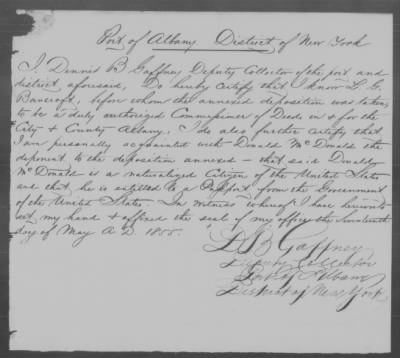 Port of Albany. District of New York
I. Dennis B Gaffney Deputy Collector of the port and
district aforesaid, Do hereby certify that I know L. G.
Bancroft, before whom the annexed deposition was taken,
to be a duly authorized Commissioner of Deeds in & for the
City & County Albany. I do also further certify that
I am personally acquainted with Donald McDonald the
deponent to the deposition annexed - that said Donald
McDonald is a naturalized Citizen of the United States
and that he is entitled to a Passport from the Government
of the United States. In witness whereof I have hereunto
set my hand & affixed the seal of my office the Seventeenth
day of May A D. 1855.
D B Gaffney
Deputy Collector
Port of Albany
District of New York